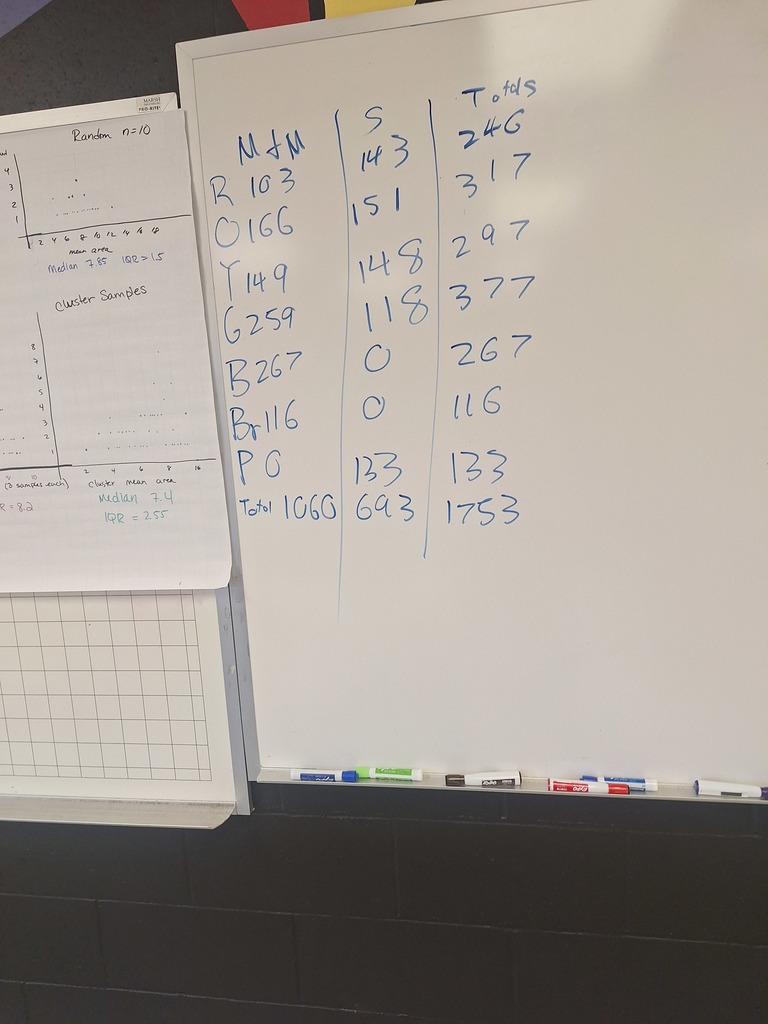 MARSH
PRO-RITE
Random n=10
4
3
2
1
2 4 6 8 10 12 14 16 18
mean area
Median 7.85 IQR = 1.5
Cluster Samples
8
7
6
5
4
3
2
1
2 4 6 8 16
cluster mean area
Median 7.4
IQR = 2.55
samples each)
R = 8.2
M&M S Totals
R 103 143 246
O 166 151 317
Y 149 148 297
G 259 118 377
B 267 0 267
Br 116 0 116
P 0 133 133
Total 1060 693 1753
EXPO